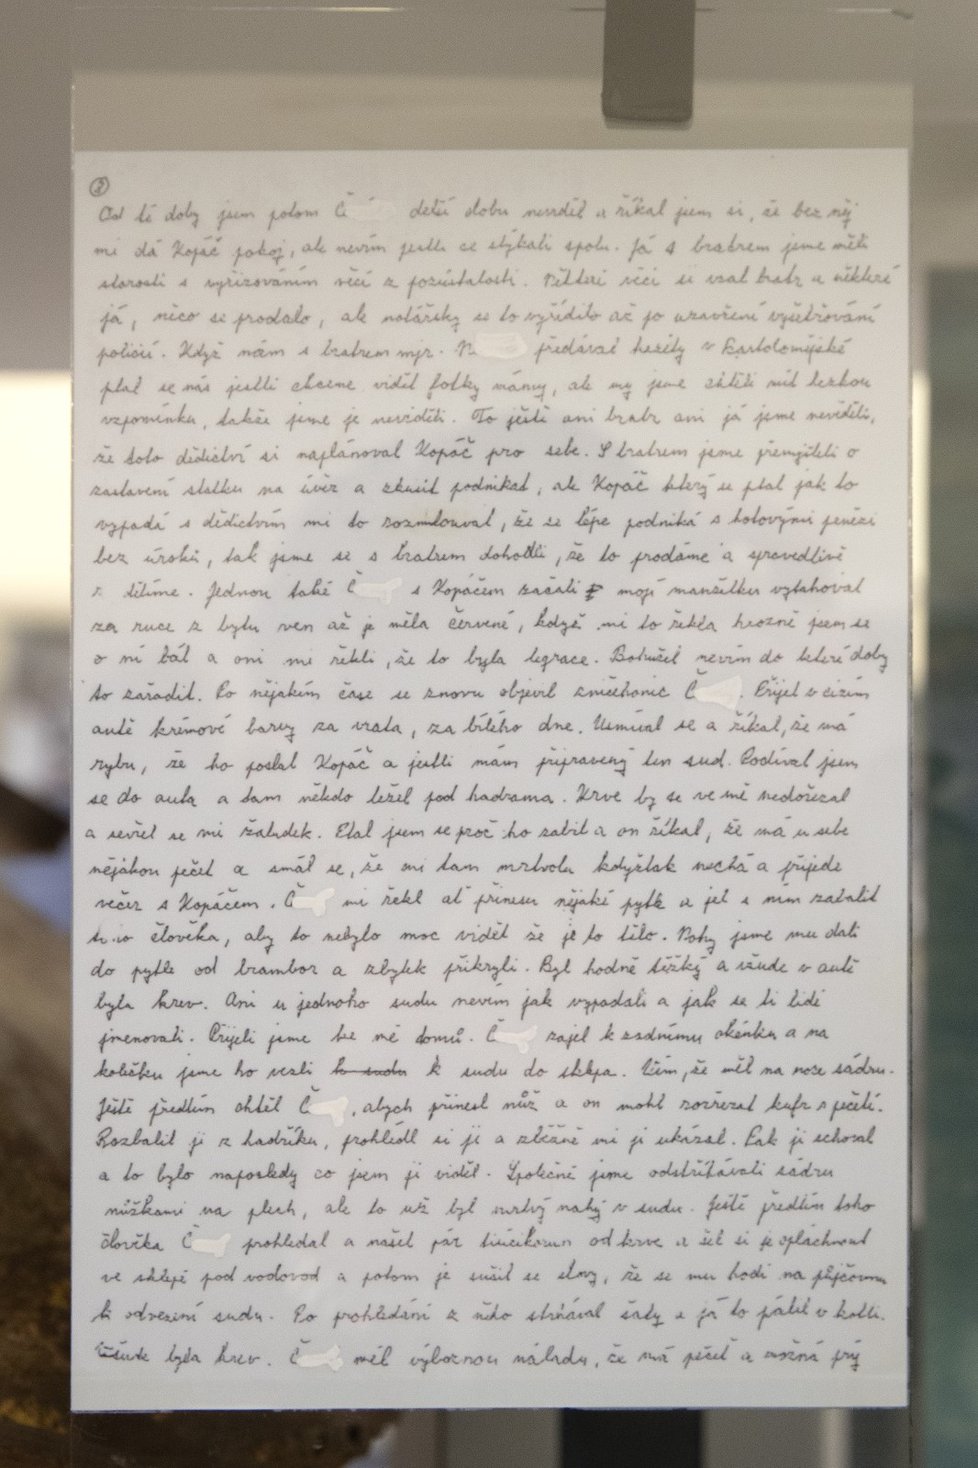 ②
Od té doby jsem potom Č delší dobu neviděl a říkal jsem si, že bez něj
mi dá Kopáč pokoj, ale nevím jestli se stýkali spolu. Já s bratrem jsme měli
starosti s vyřizováním věcí z pozůstalosti. Některé věci si vzal bratr a některé
já, něco se prodalo, ale notářsky se to vyřídilo až po uzavření vyšetřování
policií. Když nám s bratrem mjr. N předával kazety v Bartolomějské
ptal se nás jestli chceme vidět fotky mámy, ale my jsme chtěli mít hezkou
vzpomínku, takže jsme je neviděli. To ještě ani bratr ani já jsme nevěděli,
že toto dědictví si naplánoval Kopáč pro sebe. S bratrem jsme přemýšleli o
zastavení statku na úvěr a zkusit podnikat, ale Kopáč který se ptal jak to
vypadá s dědictvím mi to rozmlouval, že se lépe podniká s hotovými penězi
bez úroků, tak jsme se s bratrem dohodli, že to prodáme a spravedlivě
dělíme. Jednou také Č s Kopáčem začali moji manželku vytahovat
za ruce z bytu ven až je měla červené, když mi to řekla hrozně jsem se
o ní bál a oni mi řekli, že to byla legrace. Bohužel nevím do které doby
to zařadit. Po nějakém čase se znovu objevil zničehonic Č. Přijel v cizím
autě krémové barvy za vrata, za bílého dne. Usmíval se a říkal, že má
rybu, že ho poslal Kopáč a jestli mám připravený ten sud. Podíval jsem
se do auta a tam někdo ležel pod hadrama. Krve by se ve mě nedořezal
a sevřel se mi žaludek. Ptal jsem se proč ho zabil a on říkal, že má u sebe
nějakou pečeť a smál se, že mi tam mrtvolu kdyžtak nechá a přijede
večer s Kopáčem. Č mi řekl ať přinesu nějaké pytle a jel s ním zabalit
toho člověka, aby to nebylo moc vidět že je to tělo. Nohy jsme mu dali
do pytle od brambor a zbytek přikryli. Byl hodně těžký a všude v autě
byla krev. Ani u jednoho sudu nevím jak vypadali a jak se ti lidé
jmenovali. Přijeli jsme ke mě domů. Č zajel k zadnímu okénku a na
kolečku jsme ho vezli k sudu k sudu do sklepa. Vím, že měl na noze sádru.
Ještě předtím chtěl Č, abych přinesl nůž a on mohl rozřezat kufr s pečetí.
Rozbalil ji z hadříku, prohlédl si ji a zběžně mi ji ukázal. Pak ji schoval
a to bylo naposledy co jsem ji viděl. Společně jsme odstříhávali sádru
nůžkami na plech, ale to už byl mrtvý nahý v sudu. Ještě předtím toho
člověka Č prohledal a našel pár tisícikorun od krve a šel si je opláchnout
ve sklepě pod vodovod a potom je sušil se slovy, že se mu hodí na půjčovnu
k odvezení sudu. Po prohledání z něho strhával šaty a já to pálil v kotli.
Všude byla krev. Č měl výbornou náladu, že má pečeť a možná prý